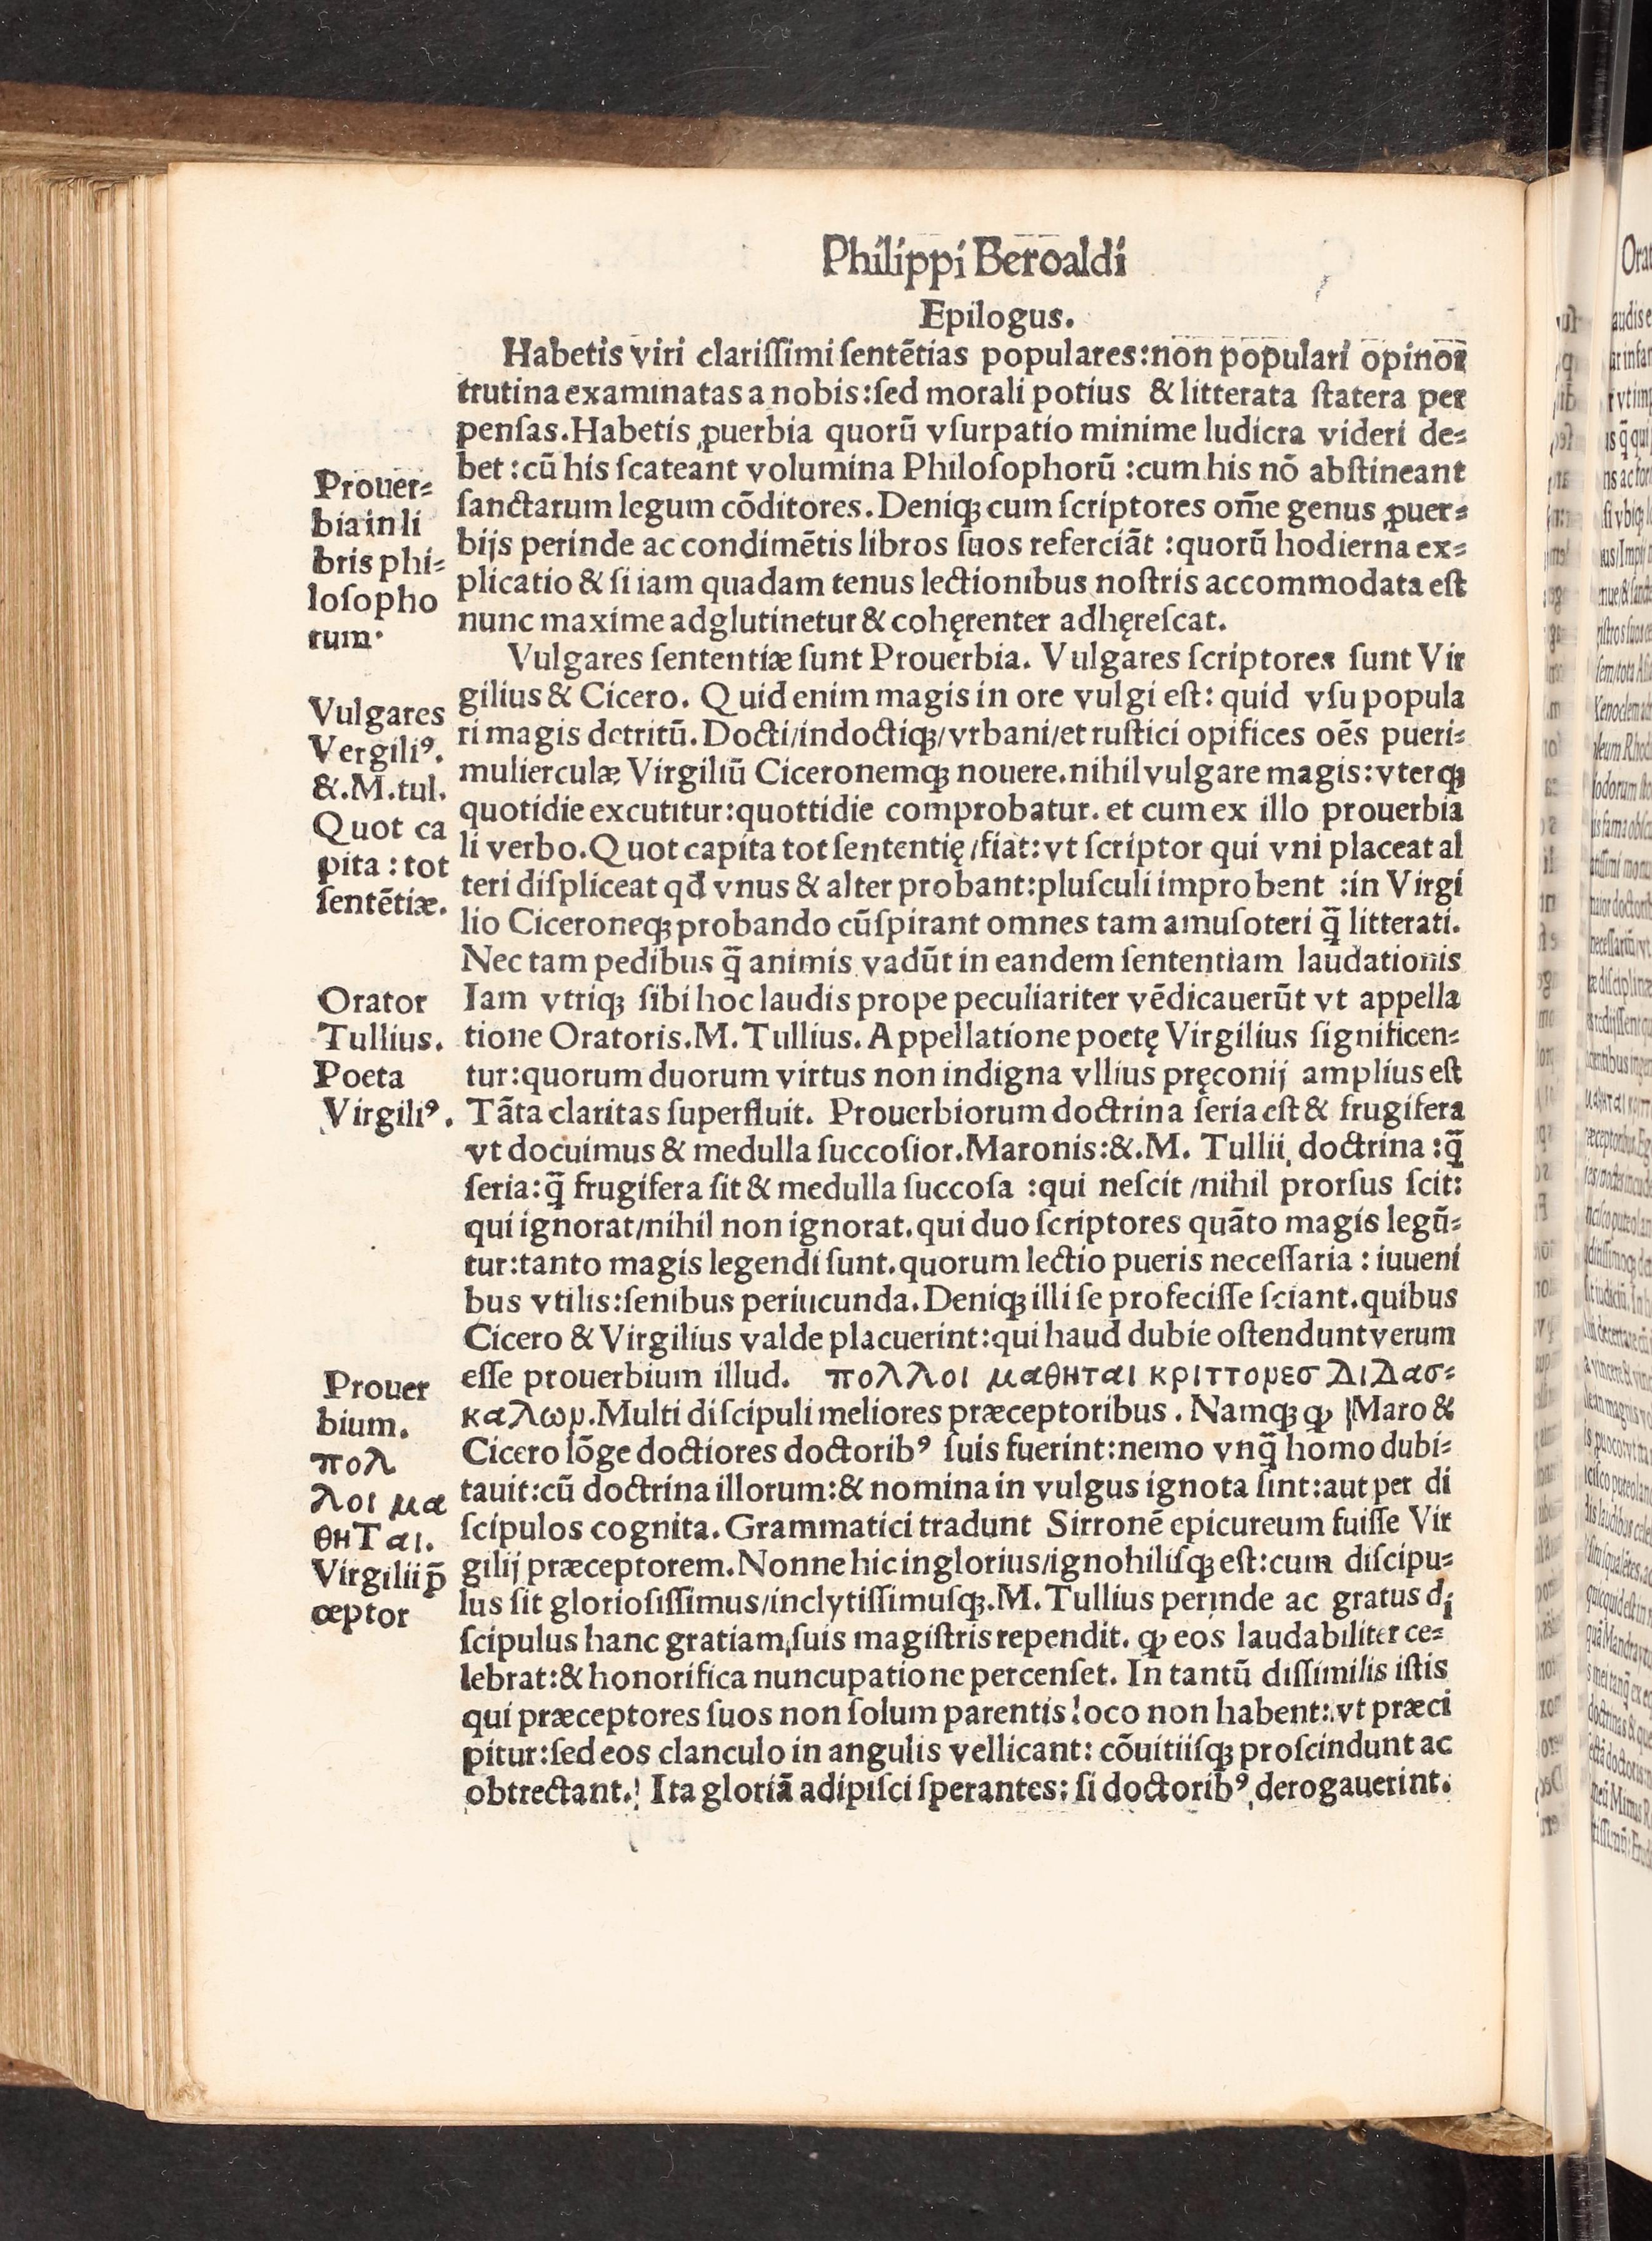 Philippi Beroaldi
Epilogus.
Habetis viri clariſſimi ſentētias populares:non populari opinor
trutina examinatas a nobis:ſed morali potius & litterata ſtatera per
penſas.Habetis ꝓuerbia quorū vſurpatio minime ludicra videri de⸗
bet :cū his ſcateant volumina Philoſophorū :cum his nō abſtineant
ſanctarum legum cōditores.Deniqꝫ cum ſcriptores om̄e genus ꝓuer⸗
bijs perinde ac condimētis libros ſuos referciāt :quorū hodierna ex⸗
plicatio & ſi iam quadam tenus lectionibus noſtris accommodata eſt
nunc maxime adglutinetur & cohęrenter adhęreſcat.
Vulgares ſententiæ ſunt Prouerbia. Vulgares ſcriptores ſunt Vir
gilius & Cicero. Quid enim magis in ore vulgi eſt: quid vſu popula
ri magis detritū. Docti/indoctiqꝫ/vrbani/et ruſtici opifices oēs pueri⸗
mulierculæ Virgiliū Ciceronemqꝫ nouere.nihil vulgare magis:vterqꝫ
quotidie excutitur:quottidie comprobatur. et cum ex illo prouerbia
li verbo.Quot capita tot ſententię/fiat:vt ſcriptor qui vni placeat al
teri diſpliceat qđ vnus & alter probant:pluſculi improbent :in Virgi
lio Ciceroneqꝫ probando cūſpirant omnes tam amuſoteri q̄ litterati.
Nec tam pedibus q̄ animis vadūt in eandem ſententiam laudationis
Iam vtriqꝫ ſibi hoc laudis prope peculiariter vēdicauerūt vt appella
tione Oratoris.M.Tullius. Appellatione poetę Virgilius ſignificen⸗
tur:quorum duorum virtus non indigna vllius pręconij amplius eſt
Tāta claritas ſuperfluit. Prouerbiorum doctrina ſeria eſt & frugifera
vt docuimus & medulla ſuccoſior.Maronis:&.M. Tullii doctrina :q̄
ſeria:q̄ frugifera ſit & medulla ſuccoſa :qui neſcit /nihil prorſus ſcit:
qui ignorat/nihil non ignorat.qui duo ſcriptores quāto magis legū⸗
tur:tanto magis legendi ſunt.quorum lectio pueris neceſſaria : iuueni
bus vtilis:ſenibus periucunda.Deniqꝫ illi ſe profeciſſe ſciant.quibus
Cicero & Virgilius valde placuerint:qui haud dubie oſtendunt verum
eſſe prouerbium illud. πολλοι μαθηται κριττονεσ διδασ⸗
καλων.Multi diſcipuli meliores præceptoribus . Namqꝫ ꝙ Maro &
Cicero lōge doctiores doctoribꝰ ſuis fuerint:nemo vnq̄ homo dubi⸗
tauit:cū doctrina illorum:& nomina in vulgus ignota ſint:aut per di
ſcipulos cognita. Grammatici tradunt Sirronē epicureum fuiſſe Vir
gilij præceptorem. Nonne hic inglorius/ignohiliſqꝫ eſt:cum diſcipu⸗
lus ſit glorioſiſſimus/inclytiſſimuſqꝫ.M.Tullius perinde ac gratus di
ſcipulus hanc gratiam ſuis magiſtris rependit. ꝙ eos laudabiliter ce⸗
lebrat:& honorifica nuncupatione percenſet. In tantū diſſimilis iſtis
qui præceptores ſuos non ſolum parentis loco non habent:vt præci
pitur:ſed eos clanculo in angulis vellicant: cōuitiiſqꝫ proſcindunt ac
obtrectant. Ita gloriā adipiſci ſperantes: ſi doctoribꝰ derogauerint.
Prouer⸗
bia in li
bris phi⸗
loſopho
rum.
Vulgares
Vergiliꝰ.
&.M.tul.
Quot ca
pita : tot
ſentētiæ.
Orator
Tullius.
Poeta
Virgiliꝰ.
Prouer
bium.
πολ
λοι μα
θηΤαι.
Virgilii p̄
ceptor